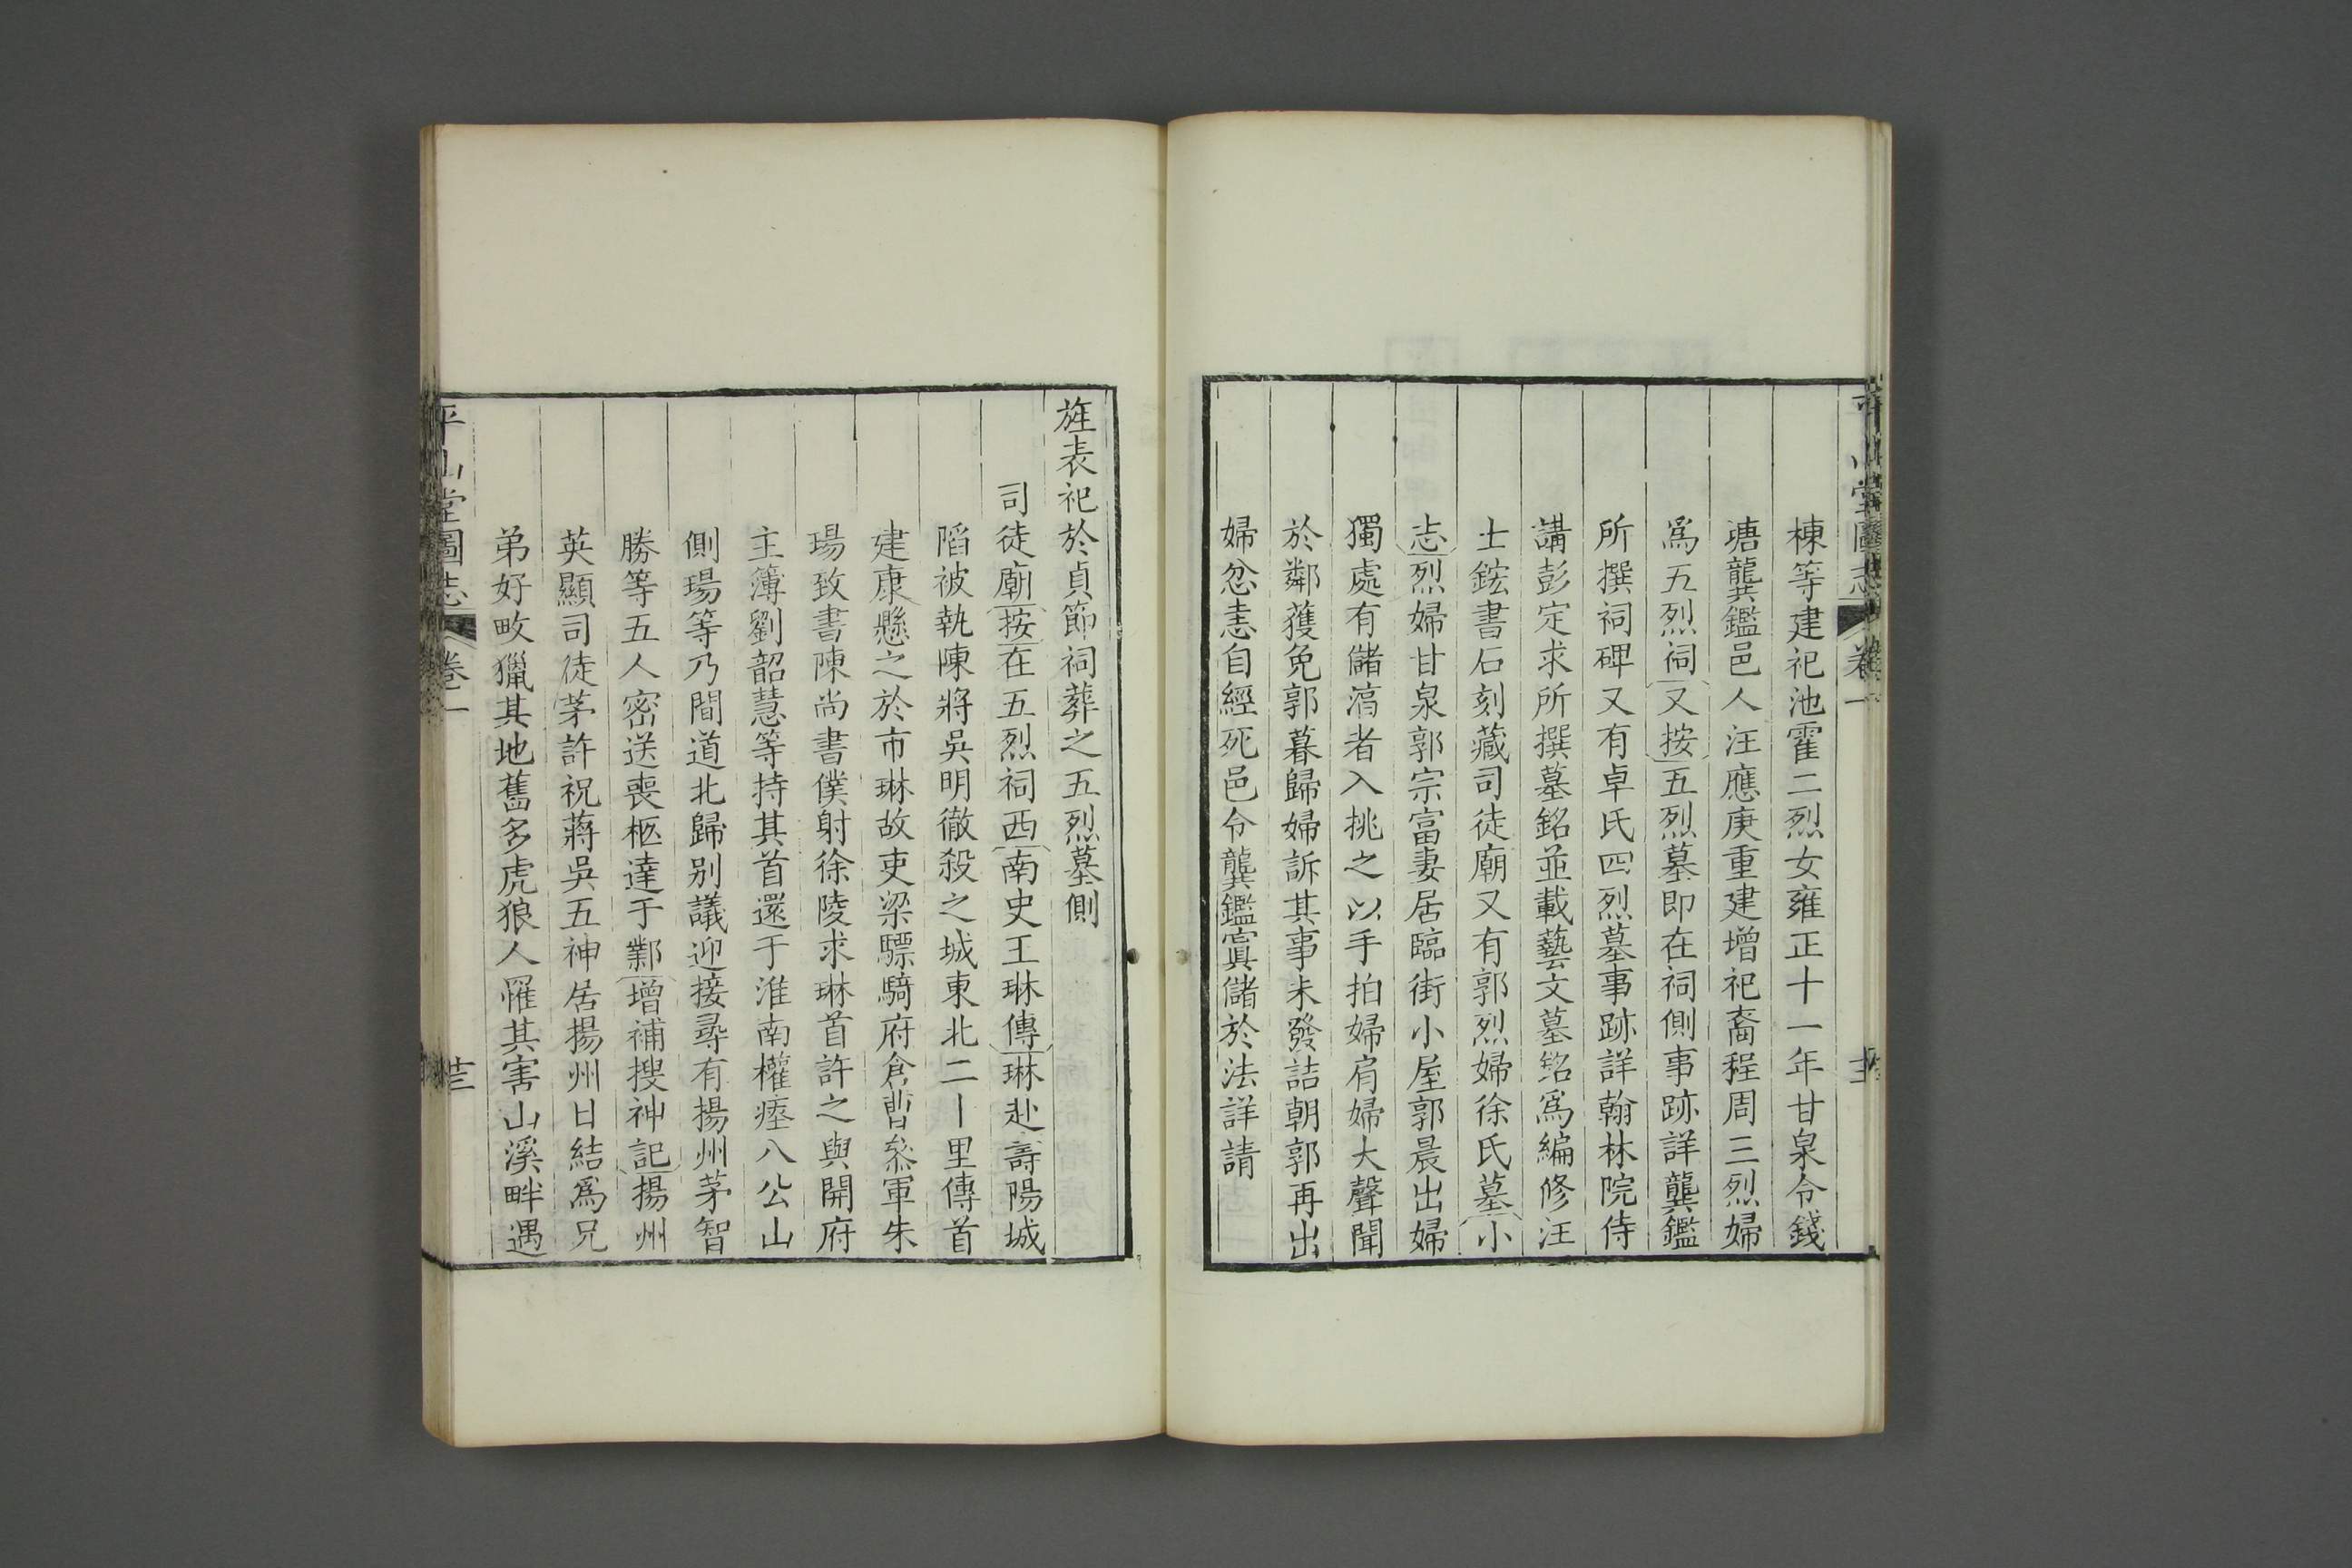 平山堂圖志 卷一
棟等建祀池霍二烈女雍正十一年甘泉令錢
塘龔鑑邑人汪應庚重建增祀裔程周三烈婦
爲五烈祠又按五烈墓即在祠側事跡詳龔鑑
所撰祠碑又有卓氏四烈墓事跡詳翰林院侍
講彭定求所撰墓銘並載藝文墓銘爲編修汪
士鋐書石刻藏司徒廟又有郭烈婦徐氏墓小
志烈婦甘泉郭宗富妻居臨街小屋郭晨出婦
獨處有儲滈者入挑之以手拍婦肩婦大聲聞
於鄰獲免郭暮歸婦訴其事未發詰朝郭再出
婦忿恚自經死邑令龔鑑寘儲於法詳請
旌表祀於貞節祠葬之五烈墓側
司徒廟按在五烈祠西南史王琳傳琳赴壽陽城
陷被執陳將吳明徹殺之城東北二丨里傳首
建康懸之於市琳故吏梁驃騎府倉曹叅軍朱
瑒致書陳尚書僕射徐陵求琳首許之與開府
主簿劉韶慧等持其首還于淮南權瘞八公山
側瑒等乃間道北歸别議迎接尋有揚州茅智
勝等五人密送喪柩達于鄴增補搜神記揚州
英顯司徒茅許祝蔣吳五神居揚州日結爲兄
弟好畋獵其地舊多虎狼人罹其害山溪畔遇
平山堂圖志 卷一